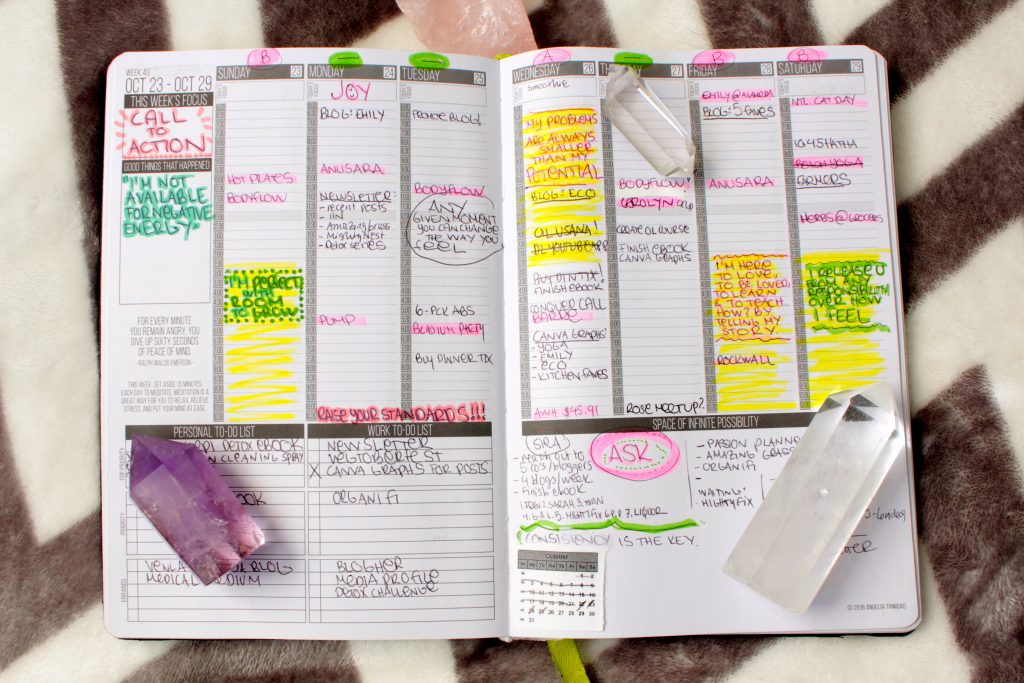 WEEK 43
OCT 23 - OCT 29
THIS WEEK'S FOCUS
CALL
TO
ACTION
GOOD THINGS THAT HAPPENED
"I'M NOT
AVAILABLE
FOR NEGATIVE
ENERGY"
FOR EVERY MINUTE
YOU REMAIN ANGRY, YOU
GIVE UP SIXTY SECONDS
OF PEACE OF MIND.
- RALPH WALDO EMERSON -
THIS WEEK, SET ASIDE 15 MINUTES
EACH DAY TO MEDITATE. MEDITATION IS A
GREAT WAY FOR YOU TO RELAX, RELIEVE
STRESS, AND PUT YOUR MIND AT EASE.
B
SUNDAY 23
HOT PILATES
BODYFLOW
I'M PERFECT
ROOM
TO GROW
MONDAY 24
JOY
BLOG: EMILY
ANUSARA
NEWSLETTER:
- recent posts
- IIN
- Amazing Grass
- Mighty Nest
- Detox series
PUMP
RAISE YOUR STANDARDS!!!
TUESDAY 25
BODYFLOW
ANY
GIVEN MOMENT
YOU CAN CHANGE
THE WAY YOU
FEEL
6-PCK ABS
BUY DINNER TIX
A
WEDNESDAY 26
SMOOTHIE
MY PROBLEMS
ARE ALWAYS
SMALLER
THAN MY
POTENTIAL
BLOG: ECO
FINISH EBOOK
CONQUER CALL
BARRE
CANVA GRAPHS:
- YOGA
- EMILY
- ECO
- KITCHEN FAVES
AWH $45.91
27
BODYFLOW
CAROLYN
CREATE OL COURSE
FINISH EBOOK
CANVA GRAPHS
ROSE MEETUP?
B
FRIDAY 28
EMILY @ ALAMEDA
BLOG: 5 FAVES
ANUSARA
I'M HERE
TO LOVE
TO BE LOVED,
TO LEARN
& TO TEACH.
HOW? BY
TELLING MY
STORY.
ROCKWALL
B
SATURDAY 29
NTL. CAT DAY
10:45 HATHA
BEACH YOGA
FARMERS
HERBS @ GROCERS
I RELEASE U
FROM ANY
RESPONSIBILITY
OVER HOW
I FEEL
PERSONAL TO-DO LIST
DETOX EBOOK
CLEANING SPRAY
BLOG
MEDICAL MEDIUM
WORK TO-DO LIST
NEWSLETTER
VEGTOBERFEST
X CANVA GRAPHS FOR POSTS
ORGANIFI
BLOGHER
MEDIA PROFILE
DETOX CHALLENGE
TOP PRIORITY
PRIORITY
ERRANDS
SPACE OF INFINITE POSSIBILITY
- reach out to
5 co's/bloggers
- 4 blogs/week
- finish ebook
ASK
- PASSION PLANNER
- AMAZING GRASS
- ORGANIFI
WAITING:
MIGHTYFIX
CONSISTENCY IS THE KEY.
October
© 2016 ANGELIA TRINIDAD